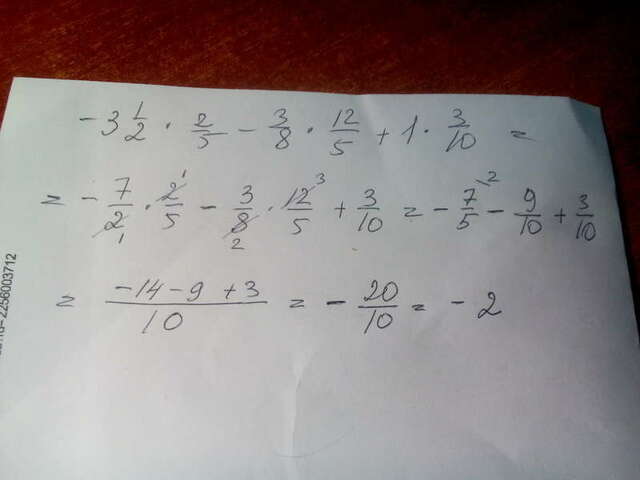 -3 1/2 · 2/5 - 3/8 · 12/5 + 1 · 3/10 =
= - 7/2 1 · 2 1/5 - 3/8 2 · 12 3/5 + 3/10 = - 7 2/5 - 9/10 + 3/10
= -14-9+3/10 = - 20/10 = - 2
2256003712